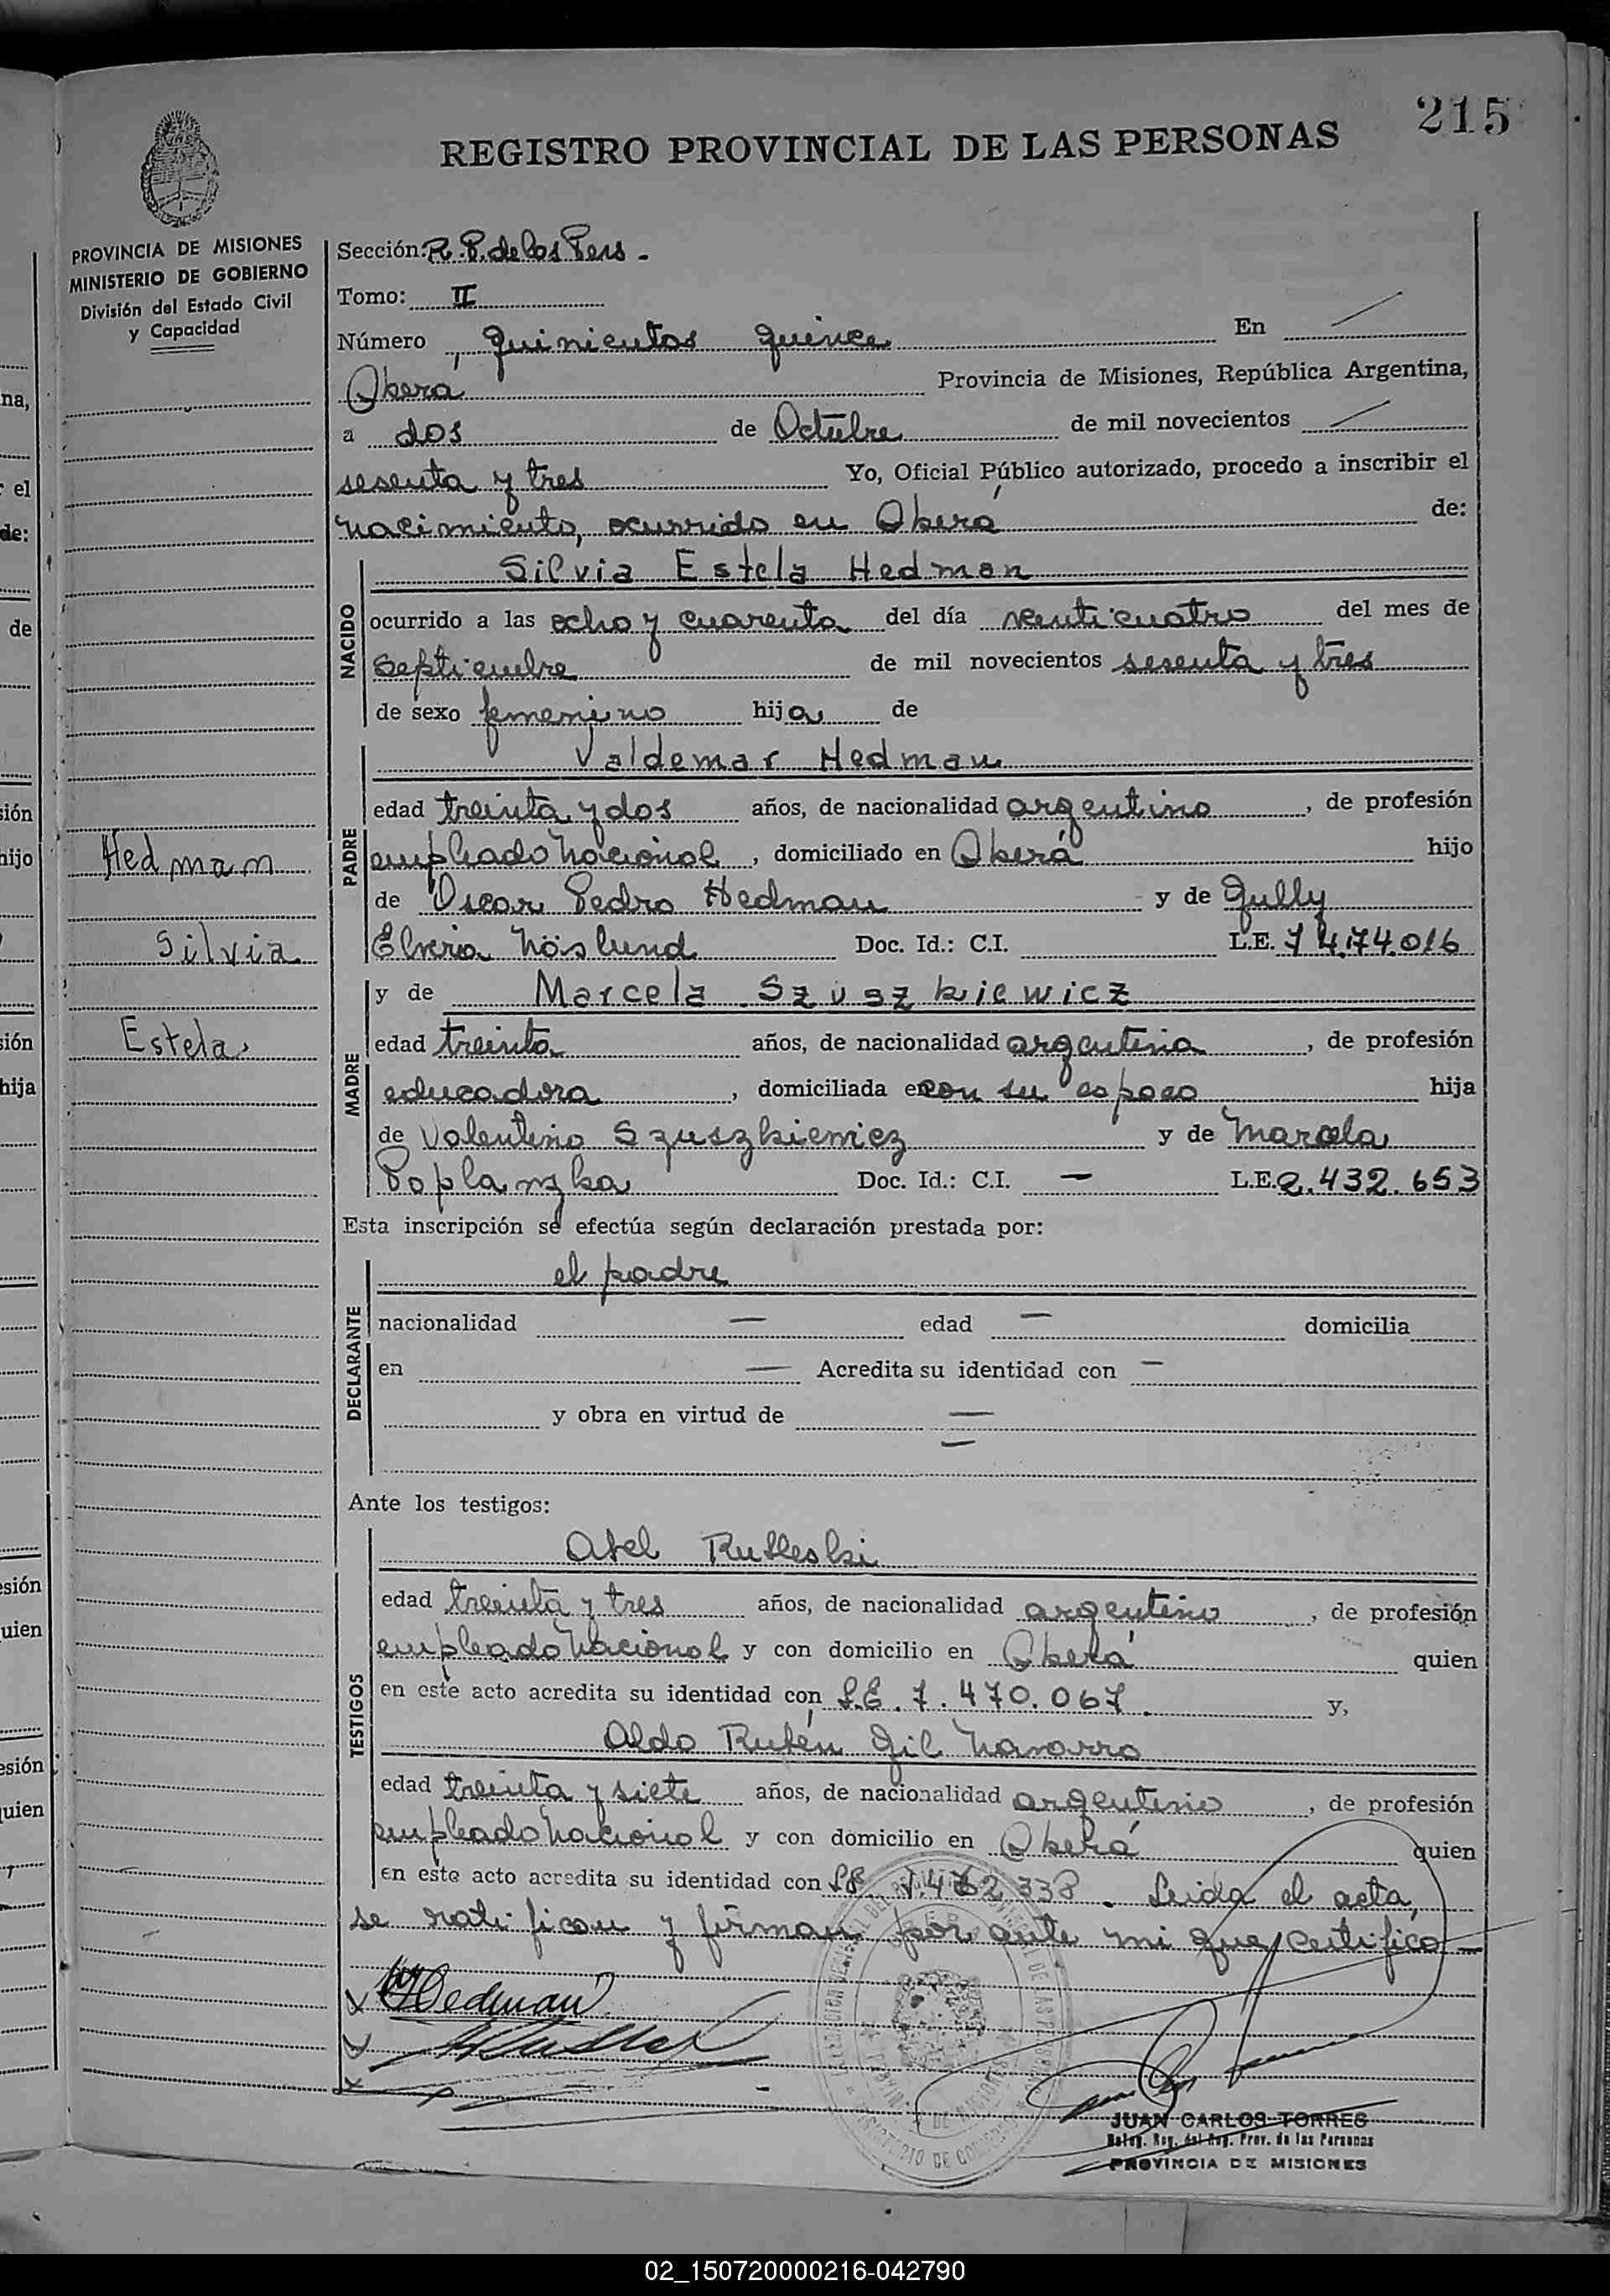 215
REGISTRO PROVINCIAL DE LAS PERSONAS
PROVINCIA DE MISIONES
MINISTERIO DE GOBIERNO
División del Estado Civil
y Capacidad
Hedman
Silvia
Estela
Sección: R. P. de las Pers -
Tomo: II
Número quinientos quince En /
Oberá Provincia de Misiones, República Argentina,
a dos de Octubre de mil novecientos /
sesenta y tres Yo, Oficial Público autorizado, procedo a inscribir el
nacimiento, ocurrido en Oberá de:
NACIDO
Silvia Estela Hedman
ocurrido a las ocho y cuarenta del día veinticuatro del mes de
Septiembre de mil novecientos sesenta y tres
de sexo femenino hija de
PADRE
Valdemar Hedman
edad treinta y dos años, de nacionalidad argentino, de profesión
empleado Nacional, domiciliado en Oberá hijo
de Oscar Pedro Hedman y de Gully
Elvira Nöslund Doc. Id.: C.I. L.E. 7.474.016
MADRE
y de Marcela Szuszkiewicz
edad treinta años, de nacionalidad argentina, de profesión
educadora, domiciliada en con su esposo hija
de Valentino Szuszkiewicz y de Marcela
Doc. Id.: C.I. — L.E. 2.432.653
Esta inscripción se efectúa según declaración prestada por:
DECLARANTE
el padre
nacionalidad — edad — domicilia
en — Acredita su identidad con —
y obra en virtud de —
—
Ante los testigos:
TESTIGOS
Abel Rutleski
edad treinta y tres años, de nacionalidad argentino, de profesión
empleado Nacional y con domicilio en Oberá quien
en este acto acredita su identidad con L.E. 7.470.067. y,
Aldo Rubén Gil Navarro
edad treinta y siete años, de nacionalidad argentino, de profesión
empleado Nacional y con domicilio en Oberá quien
en este acto acredita su identidad con LE. Leida el acta,
se ratifican y firman por ante mi que certifico —
Hedman
JUAN CARLOS TORRES
Reg. del Reg. Prov. de las Personas
PROVINCIA DE MISIONES
02_150720000216-042790